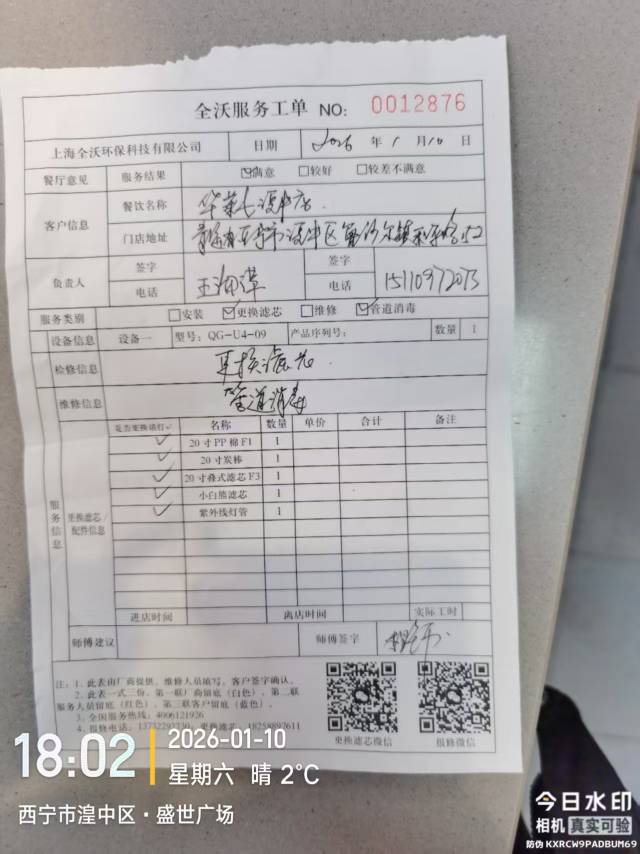 全沃服务工单 NO: 0012876
上海全沃环保科技有限公司 日期 2026 年 1 月 10 日
餐厅意见 服务结果 ☑满意 □较好 □较差不满意
客户信息 餐饮名称 华莱士湟中店
门店地址 青海省西宁市湟中区鲁沙尔镇
负责人 签字 签字
电话 电话 15110977073
服务类别 □安装 ☑更换滤芯 □维修 ☑管道消毒
设备信息 设备一 型号: QG-U4-09 产品序列号: 数量 1
检修信息 更换滤芯
维修信息 管道消毒
服务信息 更换滤芯/配件信息
是否更换请打✓ 名称 数量 单价 合计 备注
✓ 20寸PP棉F1 1
✓ 20寸炭棒 1
✓ 20寸叠式滤芯F3 1
✓ 小白熊滤芯 1
✓ 紫外线灯管 1
进店时间 离店时间 实际工时
师傅建议 师傅签字
注: 1. 此表由厂商提供、维修人员填写、客户签字确认。
2. 此表一式三份、第一联厂商留底(白色)、第二联
服务人员留底(红色)、第三联客户留底(蓝色)。
3. 全国服务热线: 4006121926
4. 报修电话: 更换滤芯: 18258897611
更换滤芯微信 报修微信
18:02 2026-01-10
星期六 晴 2℃
西宁市湟中区·盛世广场
今日水印
相机 真实可验
防伪 KXRCW9PADBUM69